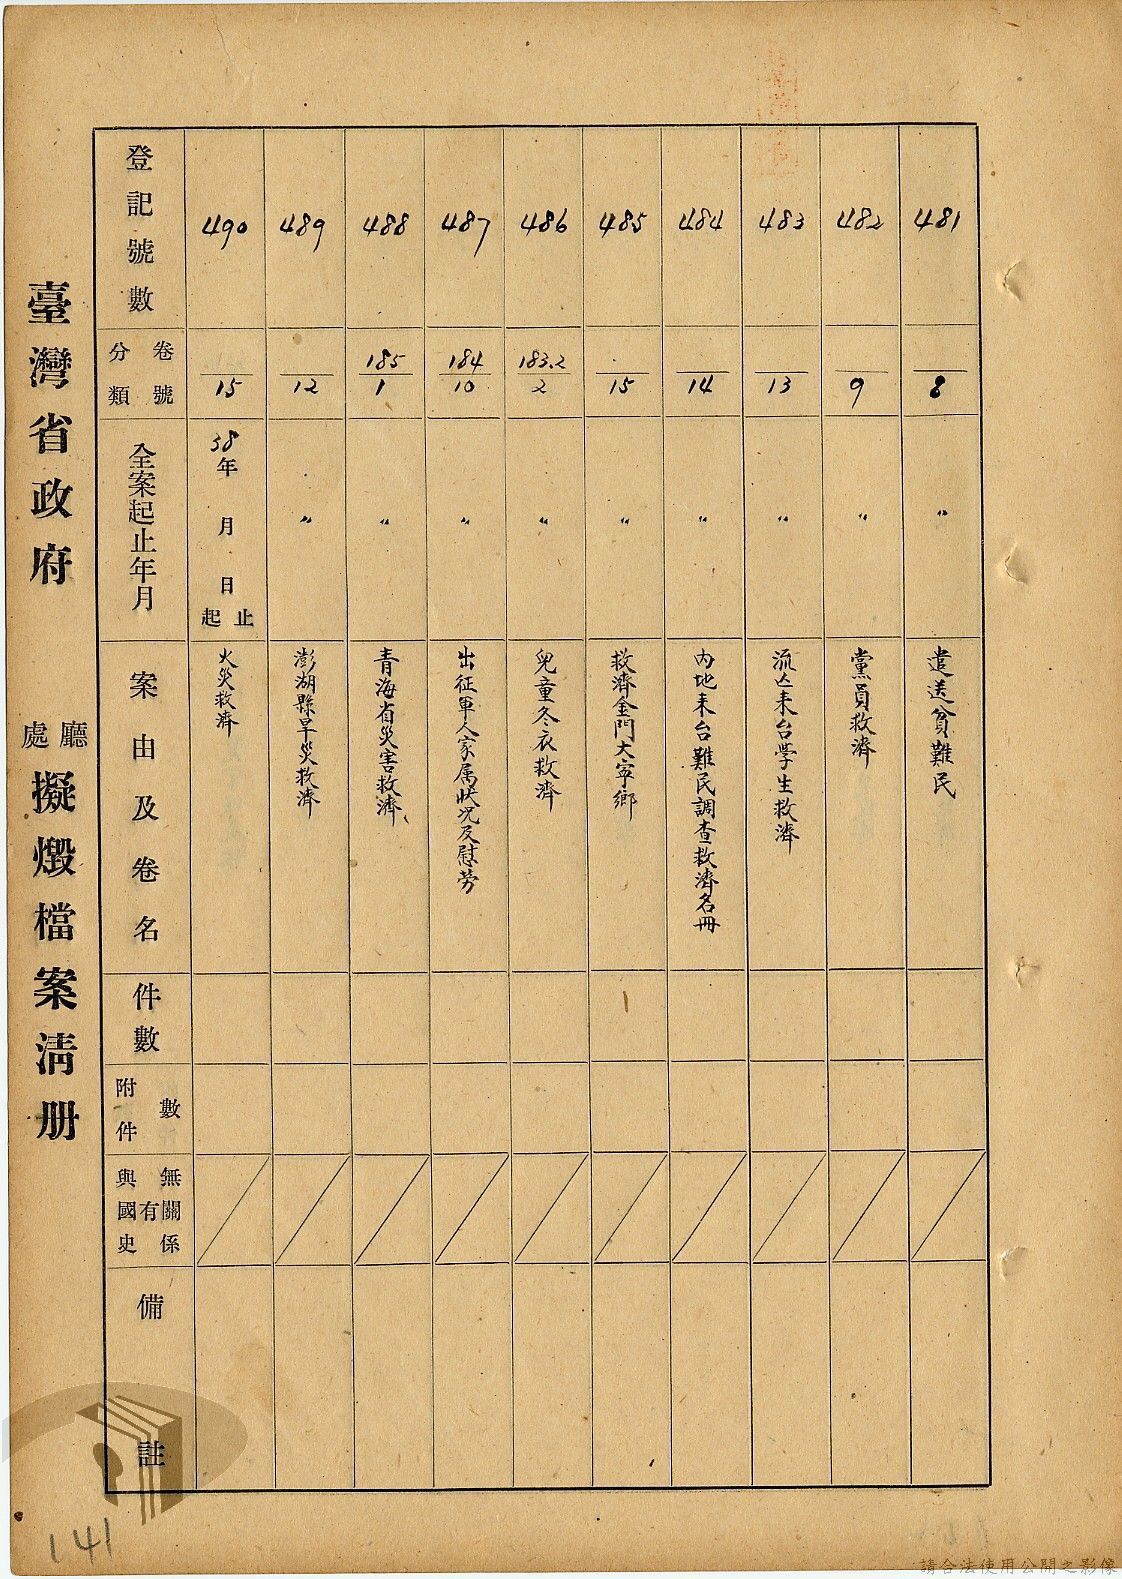 臺灣省政府 廳處擬燬檔案清册
登記號數 490 489 488 487 486 485 484 483 482 481
分類 卷號 15 12 185/1 184/10 183.2/2 15 14 13 9 8
全案起止年月 38年 月 日 起止 〃 〃 〃 〃 〃 〃 〃 〃 〃
案由及卷名
火災救濟
澎湖縣旱災救濟
青海省災害救濟
出征軍人家属狀况及慰劳
兒童冬衣救濟
救濟金門大寕鄉
內地来台難民調查救濟名冊
流亡来台學生救濟
黨員救濟
遣送貧難民
件數
附件數
與國史有無關係
備註
141
請合法使用公開之影像